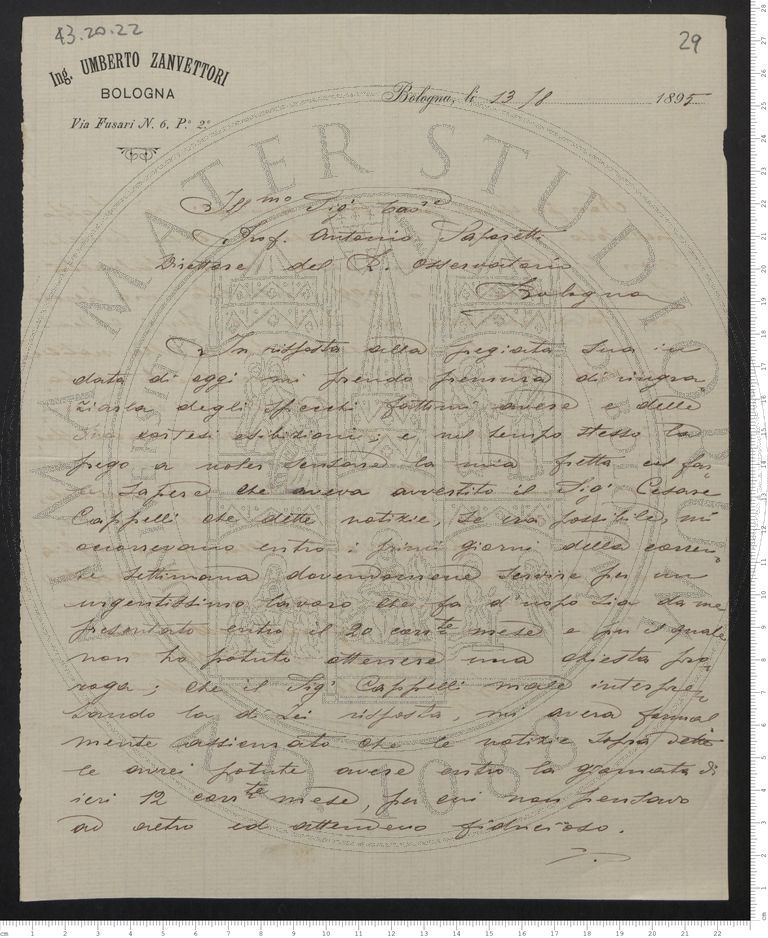 43.20.22
29
Ing. UMBERTO ZANVETTORI
BOLOGNA
Via Fusari N. 6, P.º 2.º
Bologna, li 13/8 1895
Ill.mo Sig. Cav.re
Prof. Antonio Saporetti
Direttore del R. Osservatorio
Bologna
In risposta alla pregiata Sua in
data di oggi mi prendo premura di ringra-
ziarla degli specchi fattimi avere e delle
Sue cortesi esibizioni; e nel tempo stesso la
prego a voler scusare la mia fretta col far-
Le sapere che aveva avvertito il Sigr Cesare
Cappelli che dette notizie, se era possibile, mi
occorrevano entro i primi giorni della corren-
te settimana dovendomene servire per un
urgentissimo lavoro che fa d'uopo sia da me
presentato entro il 20 corrte mese e per il quale
non ho potuto ottenere una chiesta pro-
roga; che il Sigr Cappelli male interpre-
tando la di Lei risposta, mi aveva formal
mente assicurato che le notizie sopra dette
le avrei potute avere entro la giornata di
ieri 12 corrte mese, per cui non pensavo
ad altro ed attendevo fiducioso.
ALMA MATER STUDIORUM
A.D. 1088